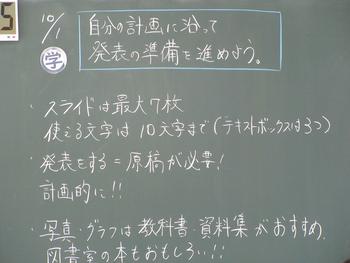 5
10/1
学
自分の計画に沿って
発表の準備を進めよう。
・スライドは最大7枚
使える文字は10文字まで(テキストボックスは3つ)
・発表をする=原稿が必要!
計画的に!!
・写真・グラフは教科書・資料集がおすすめ.
図書室の本もおもしろい!!